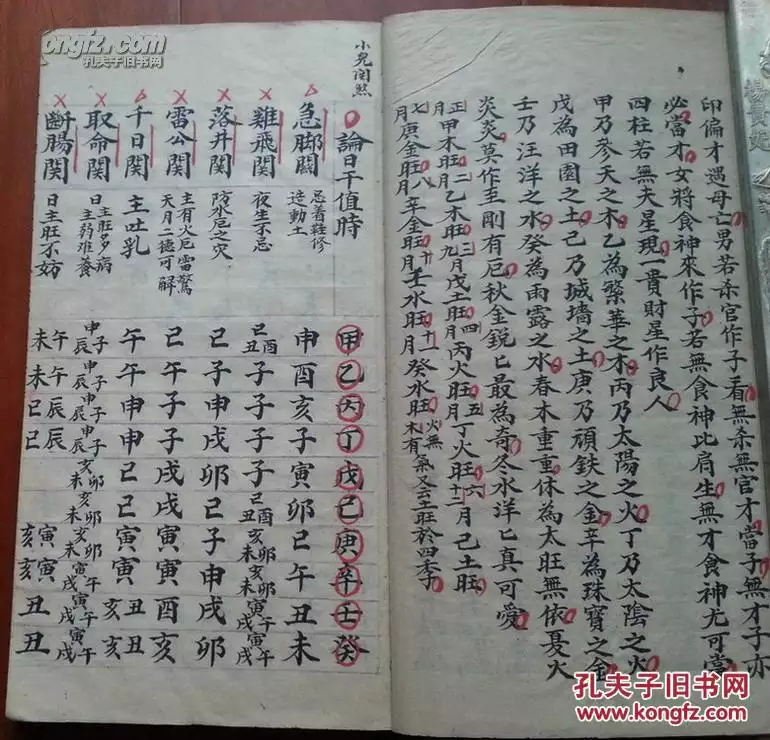 印偏才遇母亡男若杀官作子看無杀無官才當子無才子亦
必當才女將食神來作子若無食神比肩生無才食神尤可當
四柱若無夫星現一貴財星作良人
甲乃參天之木乙為繁華之木丙乃太陽之火丁乃太陰之火
戊為田園之土己乃城墻之土庚乃頑鉄之金辛為珠寶之金
壬乃汪洋之水癸為雨露之水春木重重休為太旺無依夏火
炎炎莫作至剛有厄秋金銳匕最為奇冬水洋匕真可愛
正月甲木旺二月乙木旺三九月戊土旺四月丙火旺五月丁火旺六十二月己土旺
七月庚金旺八月辛金旺十月壬水旺十一月癸水旺火無木有氣又云土旺於四季
小児関煞
論日干值時 甲乙丙丁戊己庚辛壬癸
急脚關 忌着鞋修造動土 申酉亥子寅卯巳午丑未
雞飛関 夜生不忌 己酉丑 子 子 子 子 己酉丑 亥卯未 亥卯未 寅午戌 寅午戌
落井関 防水厄之灾 己子申戌卯己子申戌卯
雷公関 主有火厄雷驚天月二德可解 午午子子戌戌寅寅酉亥
千日関 主吐乳 午午申申巳巳寅寅丑亥丑亥
取命関 日主旺多病日主弱难養 申子辰 申子辰 申子辰 申子辰 亥卯未 亥卯未 亥卯未 寅午戌 寅午戌 寅午戌
断腸関 日主旺不妨 午未 午未 辰巳 辰巳 寅亥 寅亥 丑 丑
孔夫子旧书网
孔夫子旧书网
www.kongfz.com